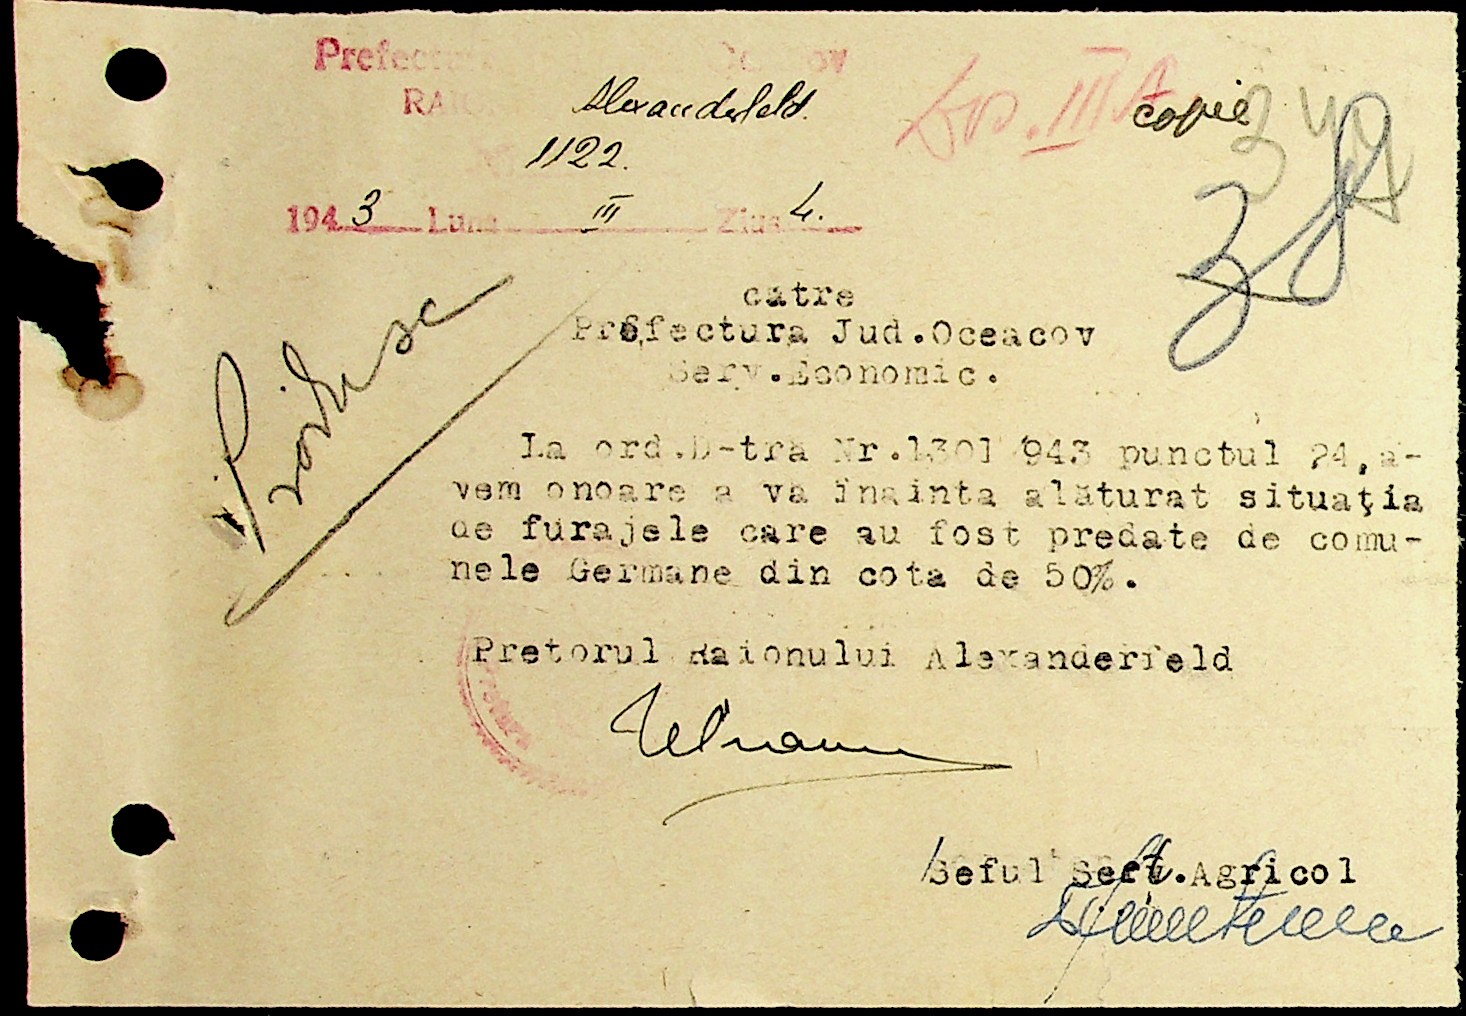 Prefectura
Alexanderfeld.
copie
1122.
1943 Luna III Ziua 4.
38
catre
Prefectura Jud.Oceacov
Serv.Economic.
La ord.D-tra Nr.1301/943 punctul 24,a-
vem onoare a va înainta alăturat situaţia
de furajele care au fost predate de comu-
nele Germane din cota de 50%.
Pretorul Raionului Alexanderfeld
Seful Serv.Agricol